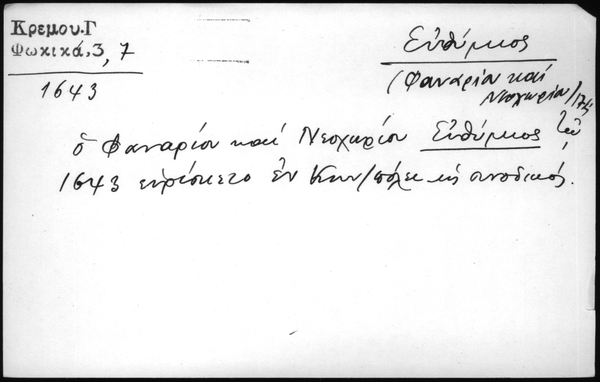 Κρεμου.Γ
Φωκικά,3,7
1643
Εὐθύμιος
(Φαναρίου καί
Νεοχωρίου)
ὁ Φαναρίου καί Νεοχωρίου Εὐθύμιος τῷ
1643 εὑρίσκετο ἐν Κων/πόλει ὡς συνοδικός.